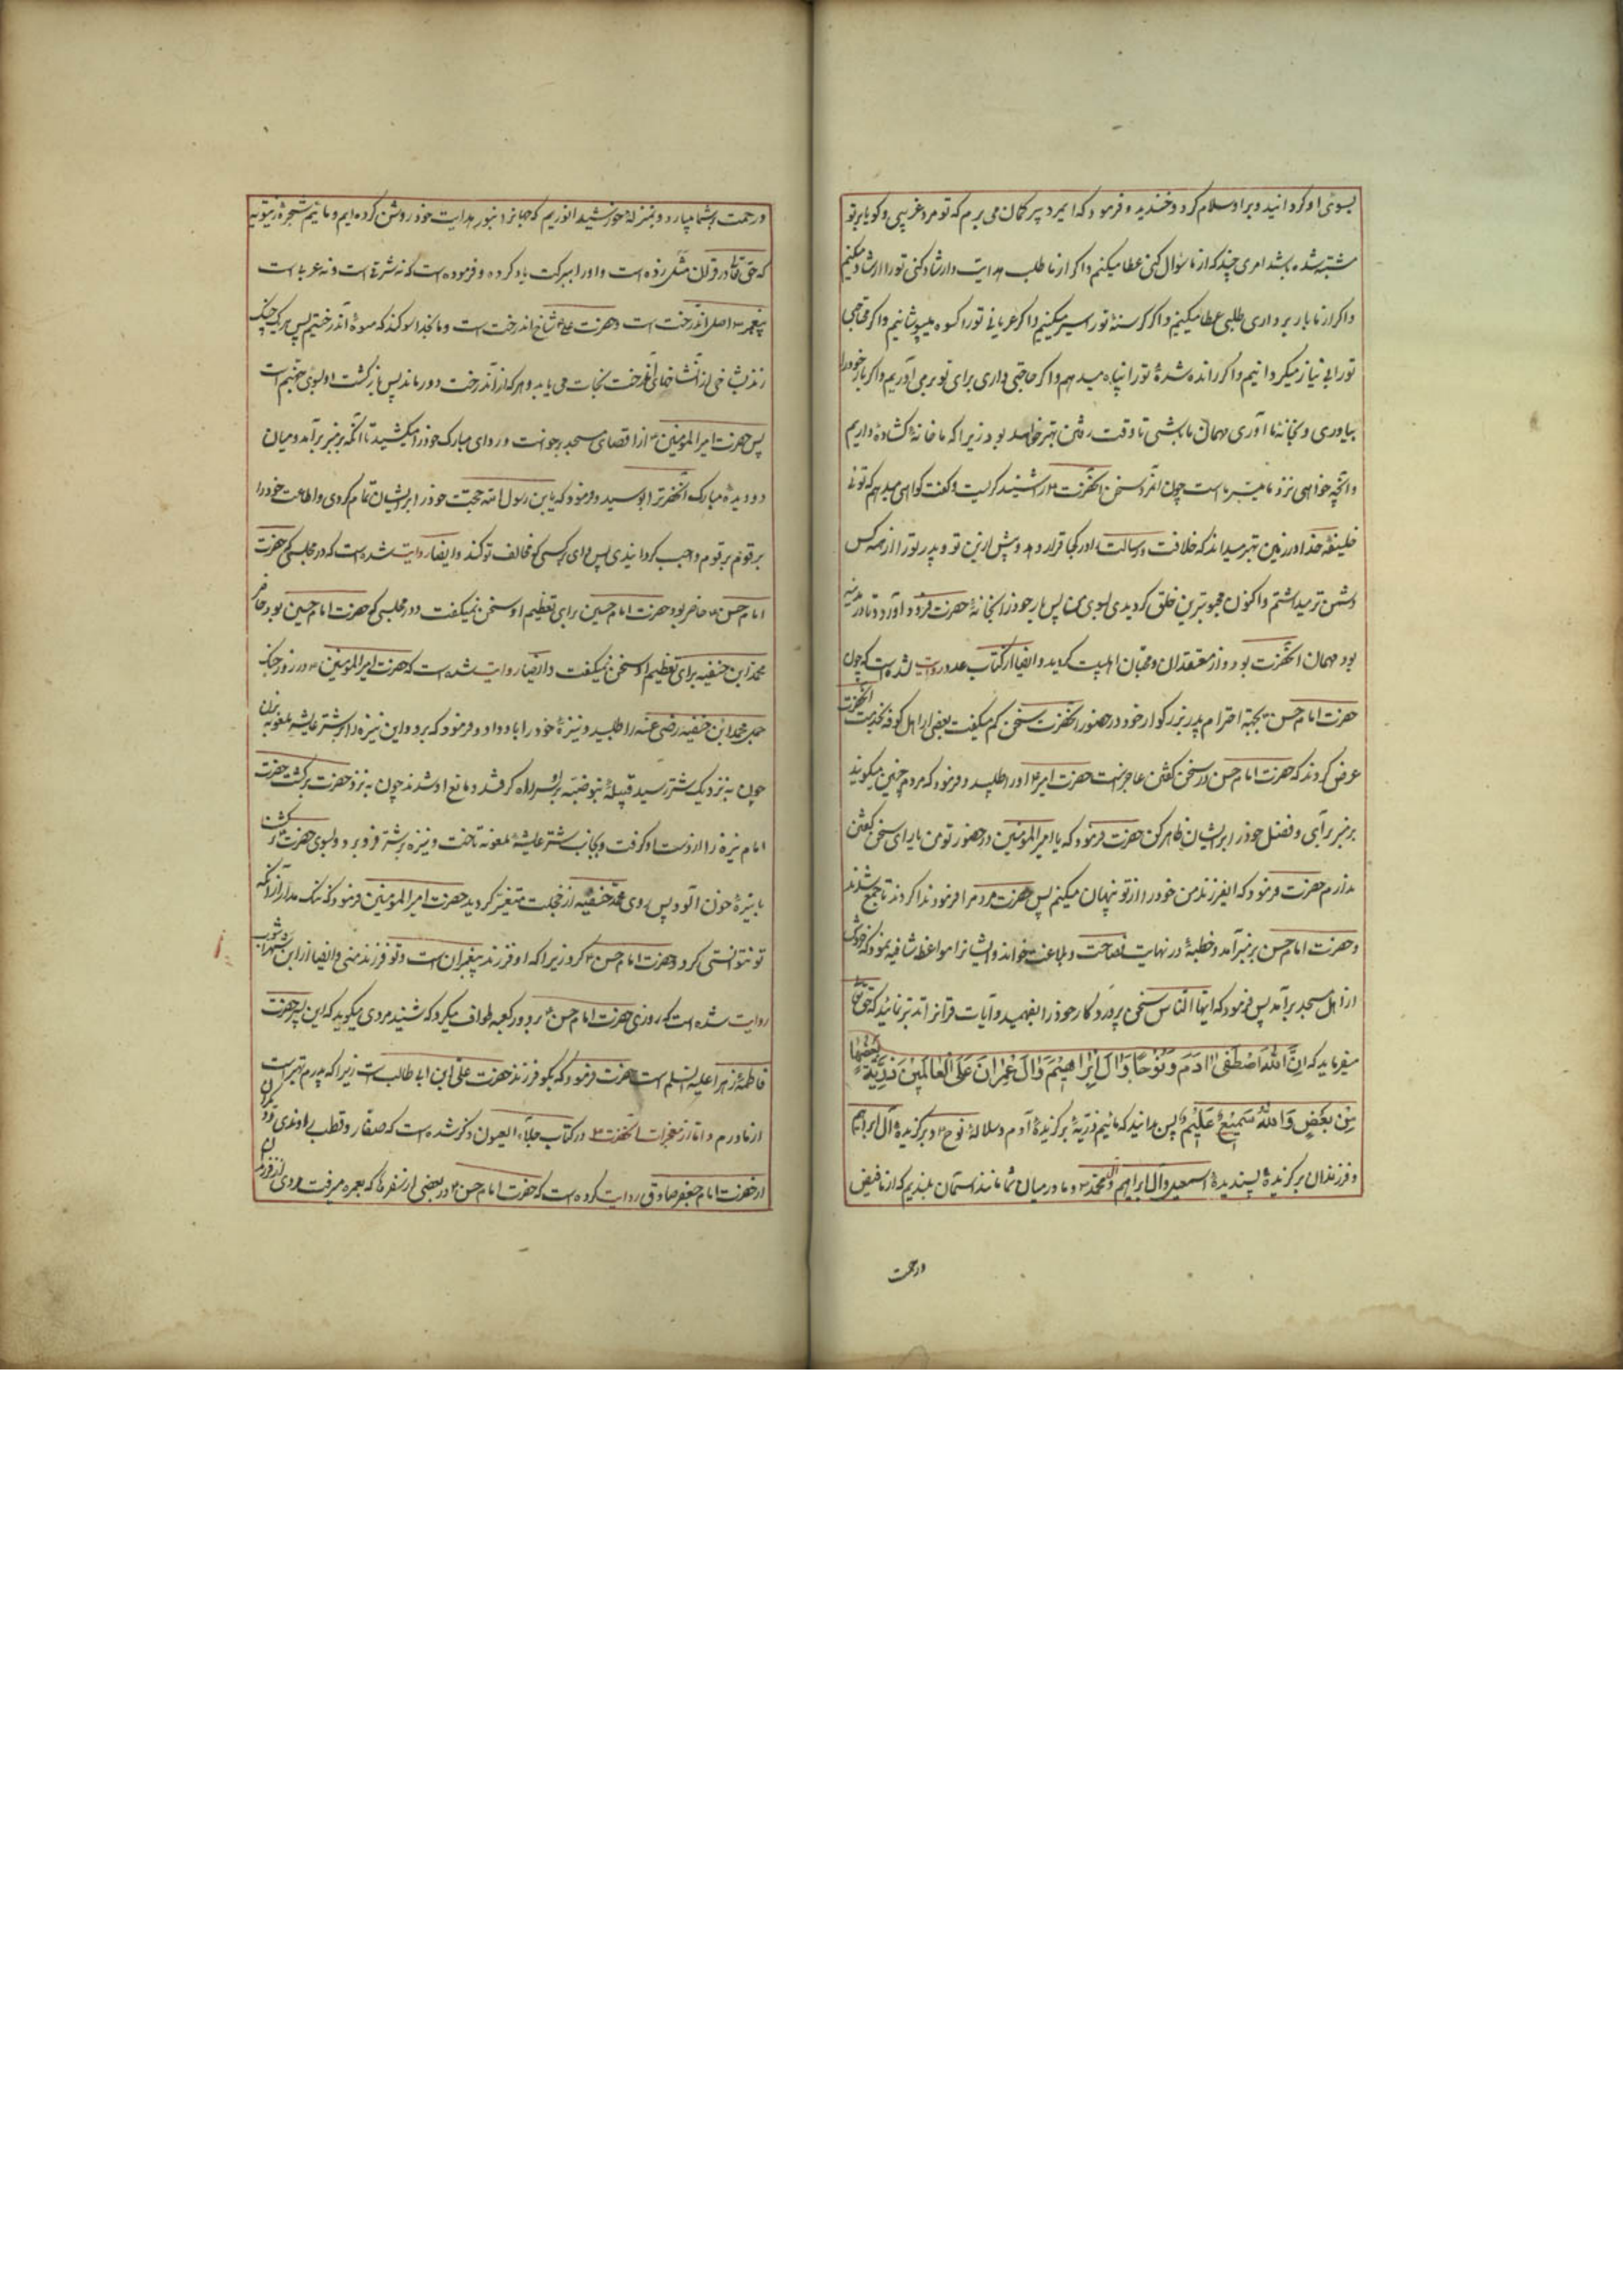 بسوی او کردانید و بر او سلام کرد و خندید و فرمود که ایمرد پیر کمان می برم که تو مرد غریبی و کویا بر تو
مشتبه شده باشد امری چند که از ما سؤال کنی عطا میکنیم و اکر از ما طلب هدایت و ارشاد کنی تو را ارشاد میکنیم
و اکر از ما بار برداری طلبی عطا میکنیم و اکر کرسنهٔ تو را سیر میکنیم و اکر عریانی تو را کسوه میپوشانیم و اکر محتاجی
تو را بی نیاز میکردانیم و اکر رانده شدهٔ تو را پناه میدهم و اکر حاجتی داری برای تو بر می آوریم و اکر بار خود را
بیاوری و بخانهٔ ما آوری و مهمان ما باشی تا وقت رفتن بهتر خواهد بود زیرا که ما خانهٔ کشاده داریم
و آنچه خواهی نزد ما میسّر است چون آنمرد سخن آنحضرت را شنید کریست و کفت کواهی میدهم که توئی
خلیفهٔ خدا در زمین بهتر میداند که خلافت و رسالت را در کجا قرار دهد و پیش از این تو و پدر تو را از همه کس
دشمن تر میداشتم و اکنون محبوبترین خلق کردیدی بسوی من پس بار خود را بخانهٔ حضرت فرود آورد و تا در مدینه
بود مهمان آنحضرت بود و از معتقدان و محبان اهلبیت کردید و ایضا از کتاب عدد روایت شده است که چون
حضرت امام حسن بجهة احترام پدر بزرکوار خود در حضور آنحضرت سخن کم میکفت بعضی از اهل کوفه بخدمت آنحضرت
عرض کردند که حضرت امام حسن در سخن کفتن عاجز است حضرت امیر او را طلبید و فرمود که مردم چنین میکویند
بر منبر برآی و فضل خود را بر ایشان ظاهر کن حضرت فرمود که یا امیر المؤمنین در حضور تو من یارای سخن کفتن
ندارم حضرت فرمود که ایفرزند من خود را از تو پنهان میکنم پس حضرت مردم را فرمود ندا کردند تا جمع شدند
و حضرت امام حسن بر منبر آمد و خطبهٔ در نهایت فصاحت و بلاغت خواند و ایشانرا مواعظ شافیه نمود که خروش
از اهل مسجد برآمد پس فرمود که ایها الناس سخن پروردکار خود را بفهمید و آیات قرآنرا تدبّر نمائید که حق تعالی
میفرماید که اِنَّ اللّٰهَ اصْطَفٰی اٰدَمَ وَنُوْحًا وَاٰلَ اِبْرَاهِیْمَ وَاٰلَ عِمْرَانَ عَلَی الْعَالَمِیْنَ ذُرِّیَّةً بَعْضُهَا
مِنْ بَعْضٍ وَاللّٰهُ سَمِیْعٌ عَلِیْمٌ پس بدانید که مائیم ذریهٔ برکزیدهٔ آدم و سلالهٔ نوح و برکزیدهٔ آل ابراهیم
و فرزندان برکزیدهٔ پسندیدهٔ اسمعیل و آل ابراهیم و آل محمد و ما در میان شما مانند آسمان بلندیم که از ما فیض
و رحمت
و رحمت بر شما میبارد و بمنزلهٔ خورشید انوریم که جهانرا بنور هدایت خود روشن کرده ایم و مائیم شجرهٔ زیتونه
که حق تعالی در قرآن مثل زده است و او را ببرکت یاد کرده و فرموده است که نه شرقی است و نه غربی است
پیغمبر اصل آندرخت است و حضرت علی شاخ آندرخت است و ما بخدا سوکند که میوهٔ آندرختیم پس هر که چنک
زند بشاخی از آنشاخهای آندرخت نجات می یابد و هر که از آندرخت دور ماند پس بازکشت او بسوی جهنم است
پس حضرت امیر المؤمنین از اقصای مسجد برخواست و ردای مبارک خود را میکشید تا آنکه بر منبر برآمد و میان
دو دیدهٔ مبارک آنحضرترا بوسید و فرمود که یا ابن رسول الله حجت خود را بر ایشان تمام کردی و اطاعت خود را
بر قوم واجب کردانیدی پس وای بر کسی که مخالفت تو کند و ایضا روایت شده است که در مجلسی که حضرت
امام حسن حاضر بود حضرت امام حسین برای تعظیم او سخن نمیکفت و در مجلسی که حضرت امام حسین بود حاضر
محمد ابن حنفیه برای تعظیم او سخن نمیکفت و ایضا روایت شده است که حضرت امیر المؤمنین در روز جنک
جمل محمد ابن حنفیه رضی عنه را طلبید و نیزهٔ خود را باو داد و فرمود که برو و این نیزه را بر شتر عایشه ملعونه بزن
چون به نزدیک شتر رسید قبیلهٔ بنو ضبّه بر سر راه کرفتند و مانع او شدند چون به نزد حضرت برکشت حضرت
امام نیزه را از دست او کرفت و بجانب شتر عایشهٔ ملعونه تاخت و نیزه بر شتر فرو برد و بسوی حضرت برکشت
با نیزهٔ خون آلود پس روی محمد حنفیه از خجلت متغیّر کردید حضرت امیر المؤمنین فرمود که ننک مدار از آنکه
تو نتوانستی کرد و حضرت امام حسن کرد زیرا که او فرزند پیغمبران است و تو فرزند منی و ایضا از ابن شهراشوب
روایت شده است که روزی حضرت امام حسن بر دور کعبه طواف میکرد که شنید مردی میکوید که این پسر حضرت
فاطمهٔ زهرا علیه السلم است حضرت فرمود که بکو فرزند حضرت علی ابن ابی طالب است زیرا که پدرم بهتر است
از مادرم و اما از معجزات آنحضرت در کتاب جلاء العیون ذکر شده است که صفار و قطب راوندی و دیکران
از حضرت امام جعفر صادق روایت کرده است که حضرت امام حسن در بعضی از سفرها که بعمره میرفت مردی از فرزندان